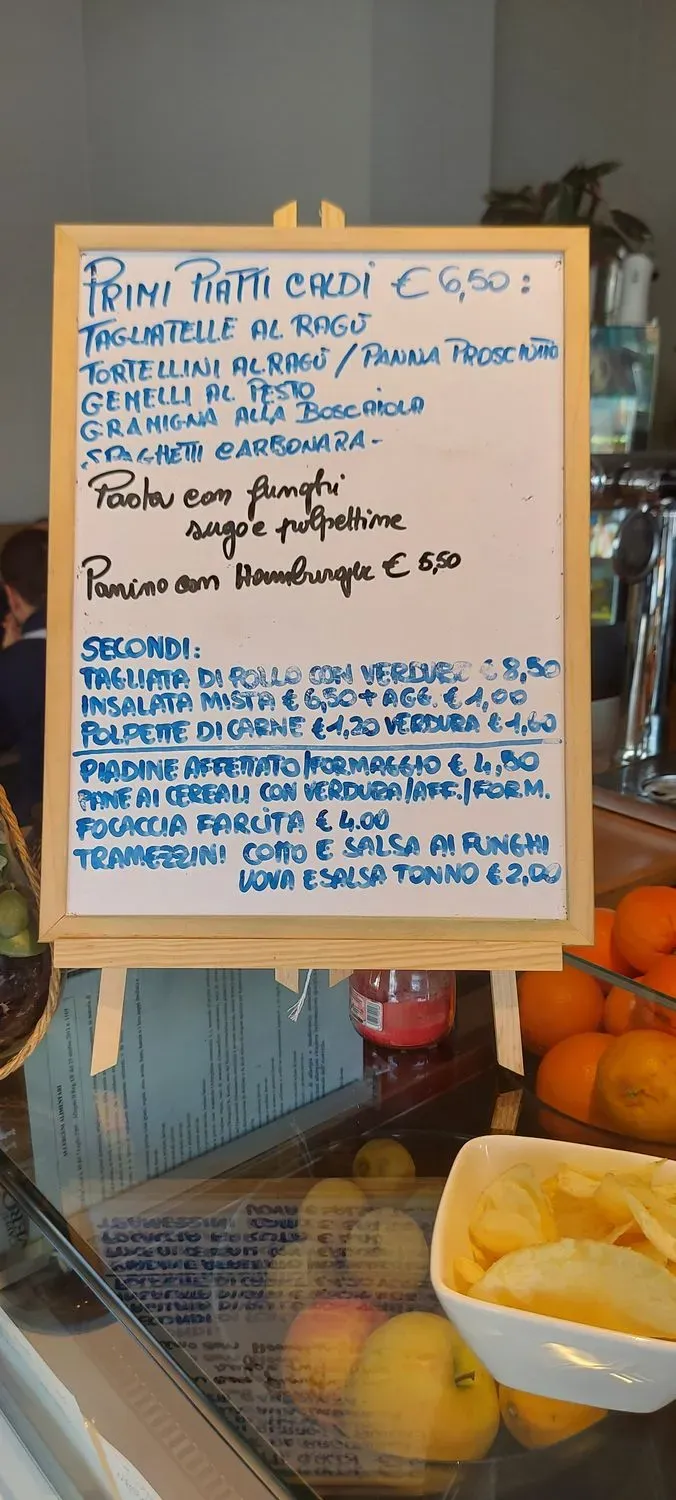 PRIMI PIATTI CALDI € 6,50:
TAGLIATELLE AL RAGÙ
TORTELLINI AL RAGÙ / PANNA PROSCIUTTO
GEMELLI AL PESTO
GRAMIGNA ALLA BOSCAIOLA
SPAGHETTI CARBONARA -
Pasta con funghi
sugo e polpettine
Panino con Hamburger € 5,50
SECONDI:
TAGLIATA DI POLLO CON VERDURE € 8,50
INSALATA MISTA € 6,50 + AGG. € 1,00
POLPETTE DI CARNE € 1,20 VERDURA € 1,60
PIADINE AFFETTATO/FORMAGGIO € 4,80
PANE AI CEREALI CON VERDURA/AFF./FORM.
FOCACCIA FARCITA € 4.00
TRAMEZZINI COTTO E SALSA AI FUNGHI
UOVA E SALSA TONNO € 2,00
ALLERGENI ALIMENTARI